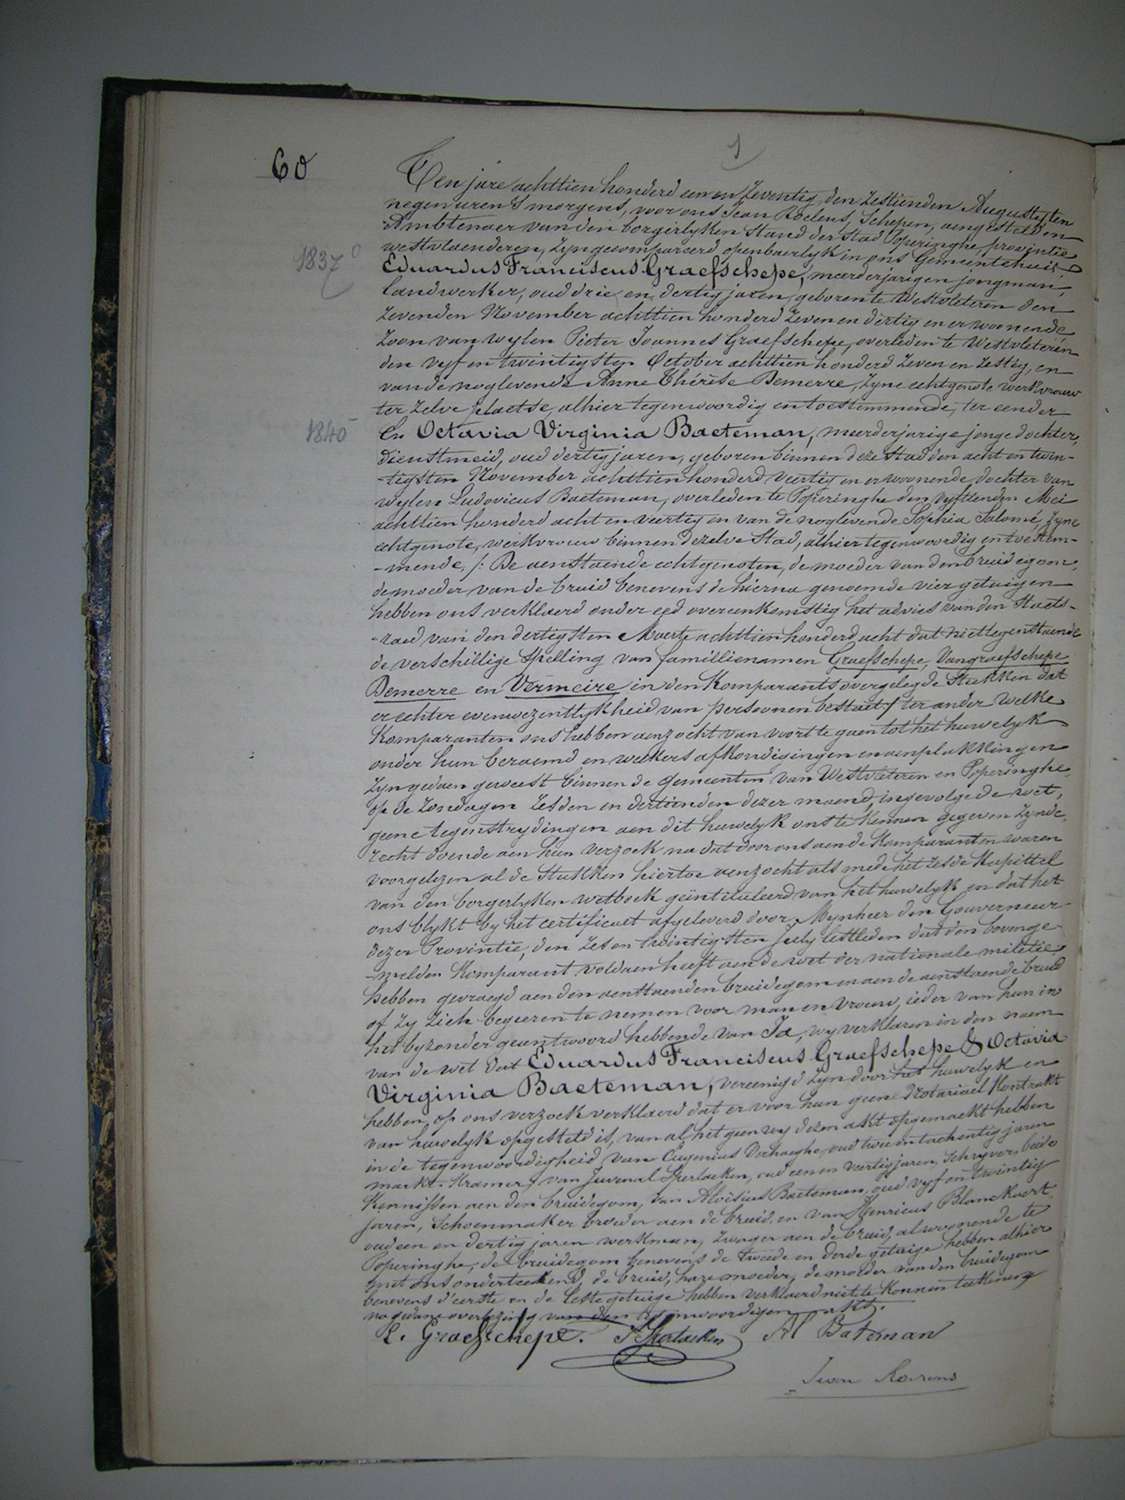 60
1
Ten jare achttien honderd een en zeventig, den zestienden Augusty ten
negen uren 's morgens, voor ons Jean Roelens, Schepen, aengestelden
Ambtenaer van den borgerlyken Stand der Stad Poperinghe, provintie
westvlaenderen, zyn gecompareerd openbaerlyk in ons Gemeentehuis
1837
Eduardus Franciscus Graefschepe, meerderjarigen jongman,
landwerker, oud drie en dertig jaren, geboren te Westvleteren den
zevenden November achttien honderd zeven en dertig en er woonende
zoon van wylen Pieter Joannes Graefschepe, overleden te Westvleteren
den vyf en twintigsten October achttien honderd zeven en zestig, en
van de noglevende Anne Thérèse Demerre, zyne echtgenote werkvrouw
ter zelve plaetse, alhier tegenwoordig en toestemmende, ter eender
1840
En Octavia Virginia Baeteman, meerderjarige jonge dochter,
dienstmeid, oud dertig jaren, geboren binnen deze Stad den acht en twin-
-tigsten November achttien honderd veertig en er woonende dochter van
wylen Ludovicus Baeteman, overleden te Poperinghe den vyftienden Mei
achttien honderd acht en veertig en van de noglevende Sophia Salomé, zyne
echtgenote, werkvrouw binnen dezelve Stad, alhier tegenwoordig en toestem-
-mende, /: De aenstaende echtgenoten, de moeder van den bruidegom,
de moeder van de bruid benevens de hierna genoemde vier getuigen
hebben ons verklaerd onder eed overeenkomstig het advies van den Staets-
-raed van den dertigsten Maert achttien honderd acht dat niettegenstaende
de verschillige spelling van famillienamen Graefschepe, Vangraefschepe
Demerre en Vermeire in den Komparants overgelegde Stukken dat
er echter evenwezentlykheid van persoonen bestaet / ter ander welke
Komparanten ons hebben aenzocht van voort te gaen tot het huwelyk
onder hun beraemd en welkers afkondigingen en aenplakkingen
zyn gedaen geweest binnen de Gemeenten van Westvleteren en Poperinghe
op de Zondagen zesden en dertienden dezer maend, ingevolge de wet,
geene tegenstrydingen aen dit huwelyk ons te kennen gegeven zynde,
recht doende aen hun verzoek na dat door ons aen de Komparanten waren
voorgelezen al de Stukken hiertoe aenzocht als mede het zesde Kapittel
van den borgerlyken wetboek geïntituleerd van het huwelyk en dat het
ons blykt by het certificaet afgeleverd door Mynheer den Gouverneur
dezer Provintie, den zes en twintigsten July lestleden dat den bovenge-
-melden Komparant voldaen heeft aen de wet der nationale militie,
hebben gevraegd aen den aenstaenden bruidegom en aen de aenstaende bruid
of zy zich begeeren te nemen voor man en vrouw, ieder van hun in
het byzonder geantwoord hebbende van Ja, wy verklaren in den naem
van de wet dat Eduardus Franciscus Graefschepe & Octavia
Virginia Baeteman, vereenigd zyn door het huwelyk en
hebben op ons verzoek verklaerd dat er voor hun geene Notariael Kontrakt
van huwelyk opgesteld is, van al het geen wy dezen akt opgemaekt hebben
in de tegenwoordigheid van Eugenius Verhaeghe, oud twee en tachentig jaren
markt-Kramer, van Juvenal Sperlaeken, oud een en veertig jaren, Schryver, beide
Kennissen aen den bruidegom, van Aloïsius Baeteman, oud vyf en twintig
jaren, Schoenmaker broeder aen de bruid en van Henricus Blanckaert,
oud een en dertig jaren werkman, zwager aen de bruid, al woonende te
Poperinghe; de bruidegom benevens de tweede en derde getuige hebben alhier
met ons onderteekend, de bruid, haere moeder, de moeder van den bruidegom
benevens d'eerste en de leste getuige hebben verklaerd niet te konnen teekenen
na gedane overlezing van den tegenwoordigen akt.
E. Graefschepe. J Sperlaeken Al Bateman
Jean Roelens